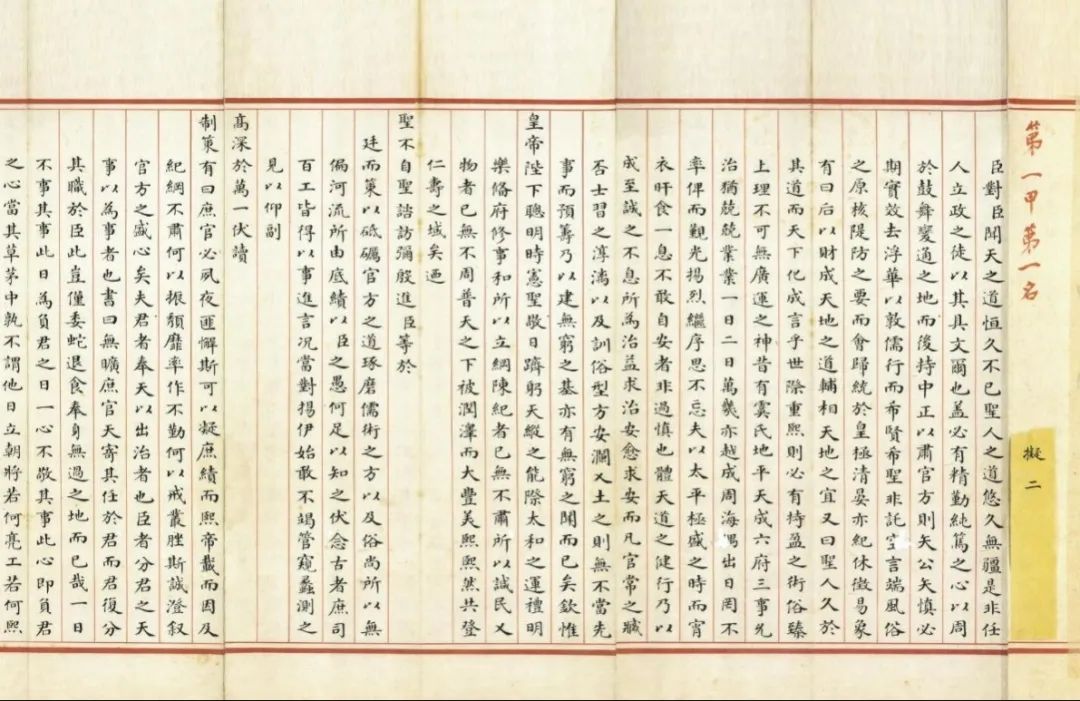 第一甲第一名
擬二
臣對臣聞天之道恒久不已聖人之道悠久無疆是非任
人立政之徒以其具文爾也盖必有精勤純篤之心以周
於鼓舞變通之地而後持中正以肅官方則矢公矢慎必
期實效去浮華以敦儒行而希賢希聖非託空言端風俗
之原核隄防之要而會歸統於皇極清晏亦紀休徵易象
有曰后以財成天地之道輔相天地之宜又曰聖人久於
其道而天下化成言乎世際重熙則必有持盈之術俗臻
上理不可無廣運之神昔有虞氏地平天成六府三事允
治猶兢兢業業一日二日萬幾亦越成周海隅出日罔不
率俾而觀光揚烈繼序思不忘夫以太平極盛之時而宵
衣旰食一息不敢自安者非過慎也體天道之健行乃以
成至誠之不息所為治益求治安愈求安而凡官常之臧
否士習之淳漓以及訓俗型方安瀾乂土之則無不當先
事而預籌乃以建無窮之基亦有無窮之聞而已矣欽惟
皇帝陛下聰明時憲聖敬日躋躬天縱之能際太和之運禮明
樂備府修事和所以立綱陳紀者已無不肅所以諴民乂
物者已無不周普天之下被潤澤而大豐美熙熙然共登
仁壽之域矣迺
聖不自聖諮訪彌殷進臣等於
廷而策以砥礪官方之道琢磨儒術之方以及俗尚所以無
偏河流所由底績以臣之愚何足以知之伏念古者庶司
百工皆得以事進言況當對揚伊始敢不竭管窺蠡測之
見以仰副
高深於萬一伏讀
制策有曰庶官必夙夜匪懈斯可以凝庶績而熙帝載而因及
紀綱不肅何以振頹靡率作不勤何以戒叢脞斯誠澄叙
官方之盛心矣夫君者奉天以出治者也臣者分君之天
事以為事者也書曰無曠庶官天寄其任於君而君復分
其職於臣此豈僅委蛇退食奉身無過之地而已哉一日
不事其事此日為負君之日一心不敬其事此心即負君
之心當其草茅中孰不謂他日立朝將若何亮工若何熙